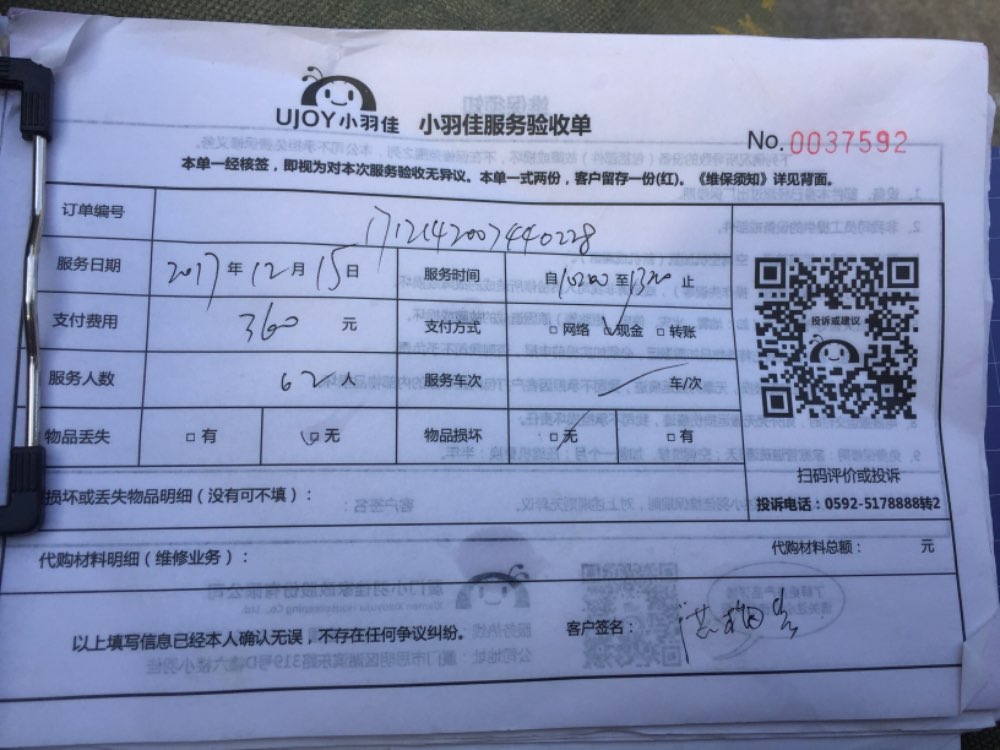 UJOY小羽佳 小羽佳服务验收单
No.0037592
本单一经核签，即视为对本次服务验收无异议。本单一式两份，客户留存一份(红)。《维保须知》详见背面。
订单编号 1712142007440228
服务日期 2017年12月15日 服务时间 自 至 止
支付费用 360 元 支付方式 □网络 ☑现金 □转账
投诉或建议
服务人数 人 服务车次 车/次
物品丢失 □有 ☑无 物品损坏 ☑无 □有
扫码评价或投诉
损坏或丢失物品明细（没有可不填）：
投诉电话：0592-5178888转2
代购材料明细（维修业务）： 代购材料总额： 元
以上填写信息已经本人确认无误，不存在任何争议纠纷。 客户签名：